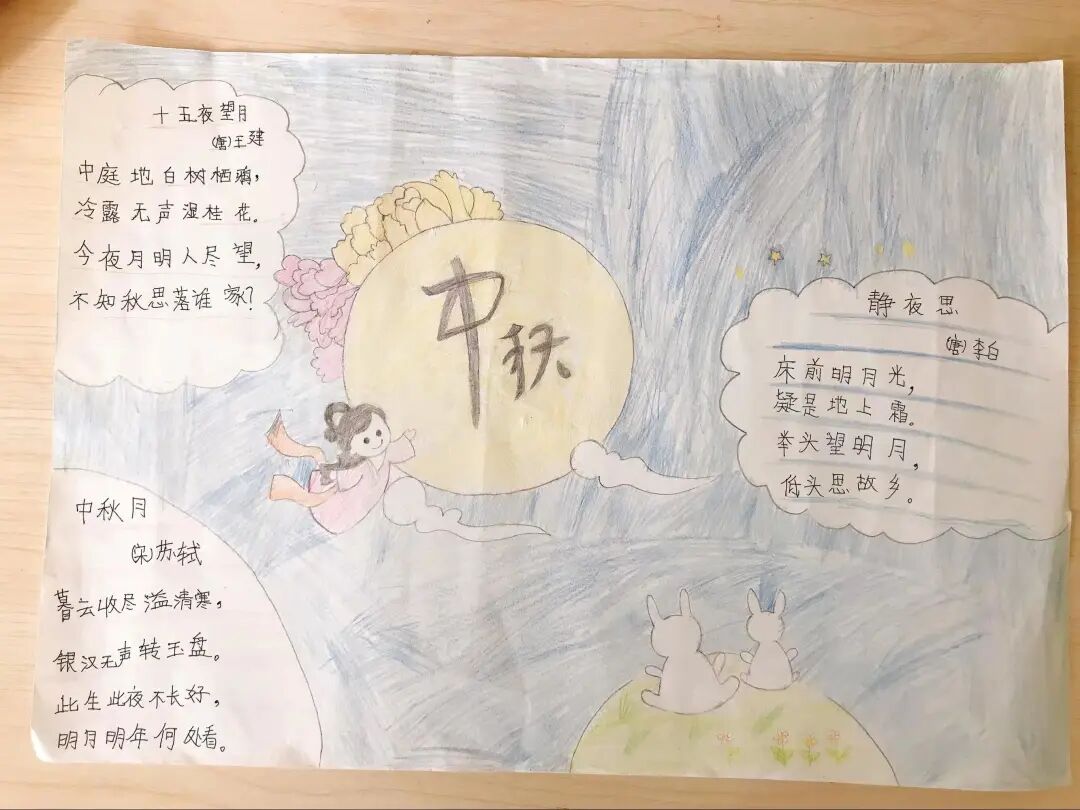 十五夜望月
(唐)王建
中庭地白树栖鸦，
冷露无声湿桂花。
今夜月明人尽望，
不知秋思落谁家？
中秋
静夜思
(唐)李白
床前明月光，
疑是地上霜。
举头望明月，
低头思故乡。
中秋月
(宋)苏轼
暮云收尽溢清寒，
银汉无声转玉盘。
此生此夜不长好，
明月明年何处看。